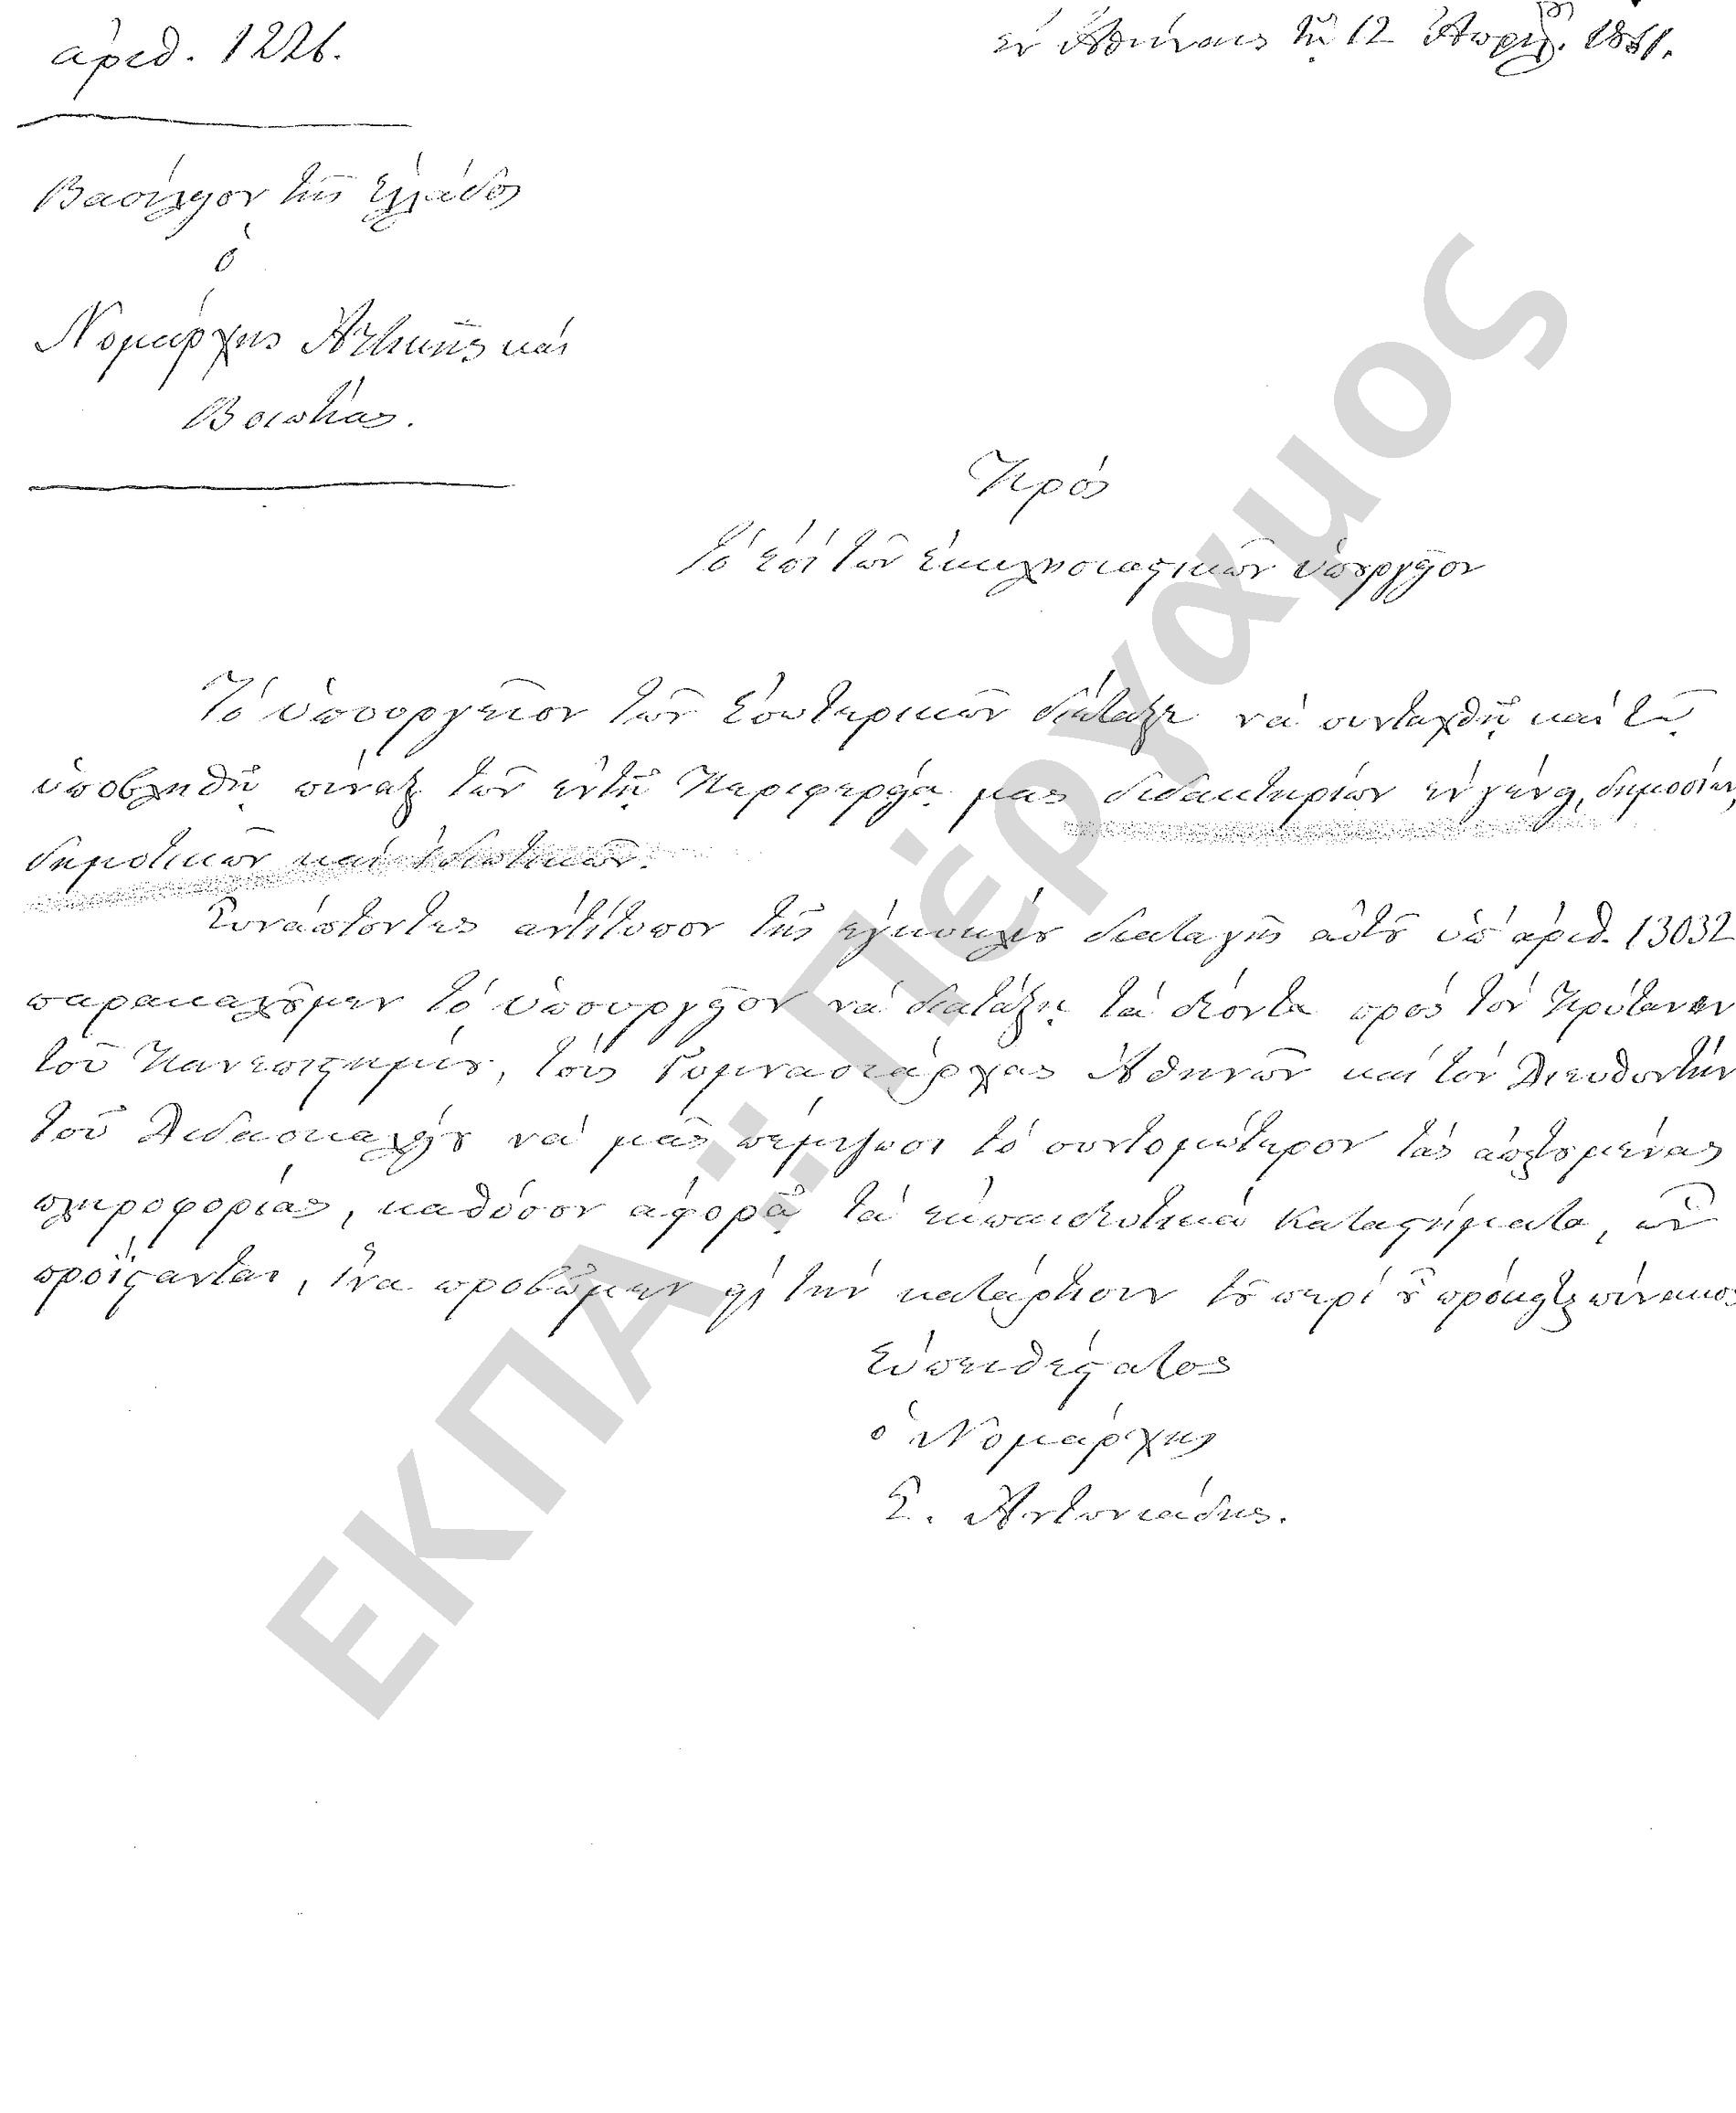 ἀριθ. 1226.
ἐν Ἀθήναις τῇ 12 Ἀπριλ. 1851.
Βασίλειον τῆς Ἑλλάδος
ὁ
Νομάρχης Ἀττικῆς καὶ
Βοιωτίας.
Πρὸς
τὸ ἐπὶ τῶν ἐκκλησιαστικῶν ὑπουργεῖον
Τὸ ὑπουργεῖον τῶν Ἐσωτερικῶν διέταξε νὰ συνταχθῇ καὶ τῷ
ὑποβληθῇ πίναξ τῶν ἐν τῇ Περιφερείᾳ μας διδακτηρίων ἐν γένει, δημοσίων,
δημοτικῶν καὶ ἰδιωτικῶν.
Συνάπτοντες ἀντίτυπον τῆς ἐγκυκλίου διαταγῆς αὐτοῦ ὑπ' ἀριθ. 13032
παρακαλοῦμεν τὸ ὑπουργεῖον νὰ διατάξῃ τὰ δέοντα πρὸς τὸν Πρύτανιν
τοῦ Πανεπιστημίου, τοὺς Γυμνασιάρχας Ἀθηνῶν καὶ τὸν Διευθυντὴν
τοῦ Διδασκαλείου νὰ μᾶς πέμψωσι τὸ συντομώτερον τὰς ἀπαιτουμένας
πληροφορίας, καθόσον ἀφορᾷ τὰ ἐκπαιδευτικὰ καταστήματα, ὧν
προΐστανται, ἵνα προβῶμεν εἰς τὴν κατάρτισιν τοῦ περὶ οὗ πρόκειται πίνακος.
Εὐπειθέστατος
ὁ Νομάρχης
Σ. Ἀντωνιάδης.
ΕΚΠΑ:: Πέργαμος